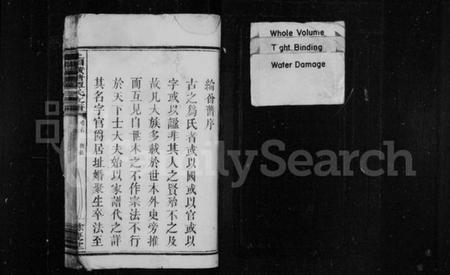 綸音舊序
古之爲氏者或以國或以官或以
字或以諡非其人之賢殆不之及
故凡大族多載於世本外史旁推
而互見自世本之不作宗法不行
於天下士大夫始以家譜代之詳
其名字官爵居址婚聚生卒法至
Whole Volume
Tight Binding
Water Damage
FamilySearch